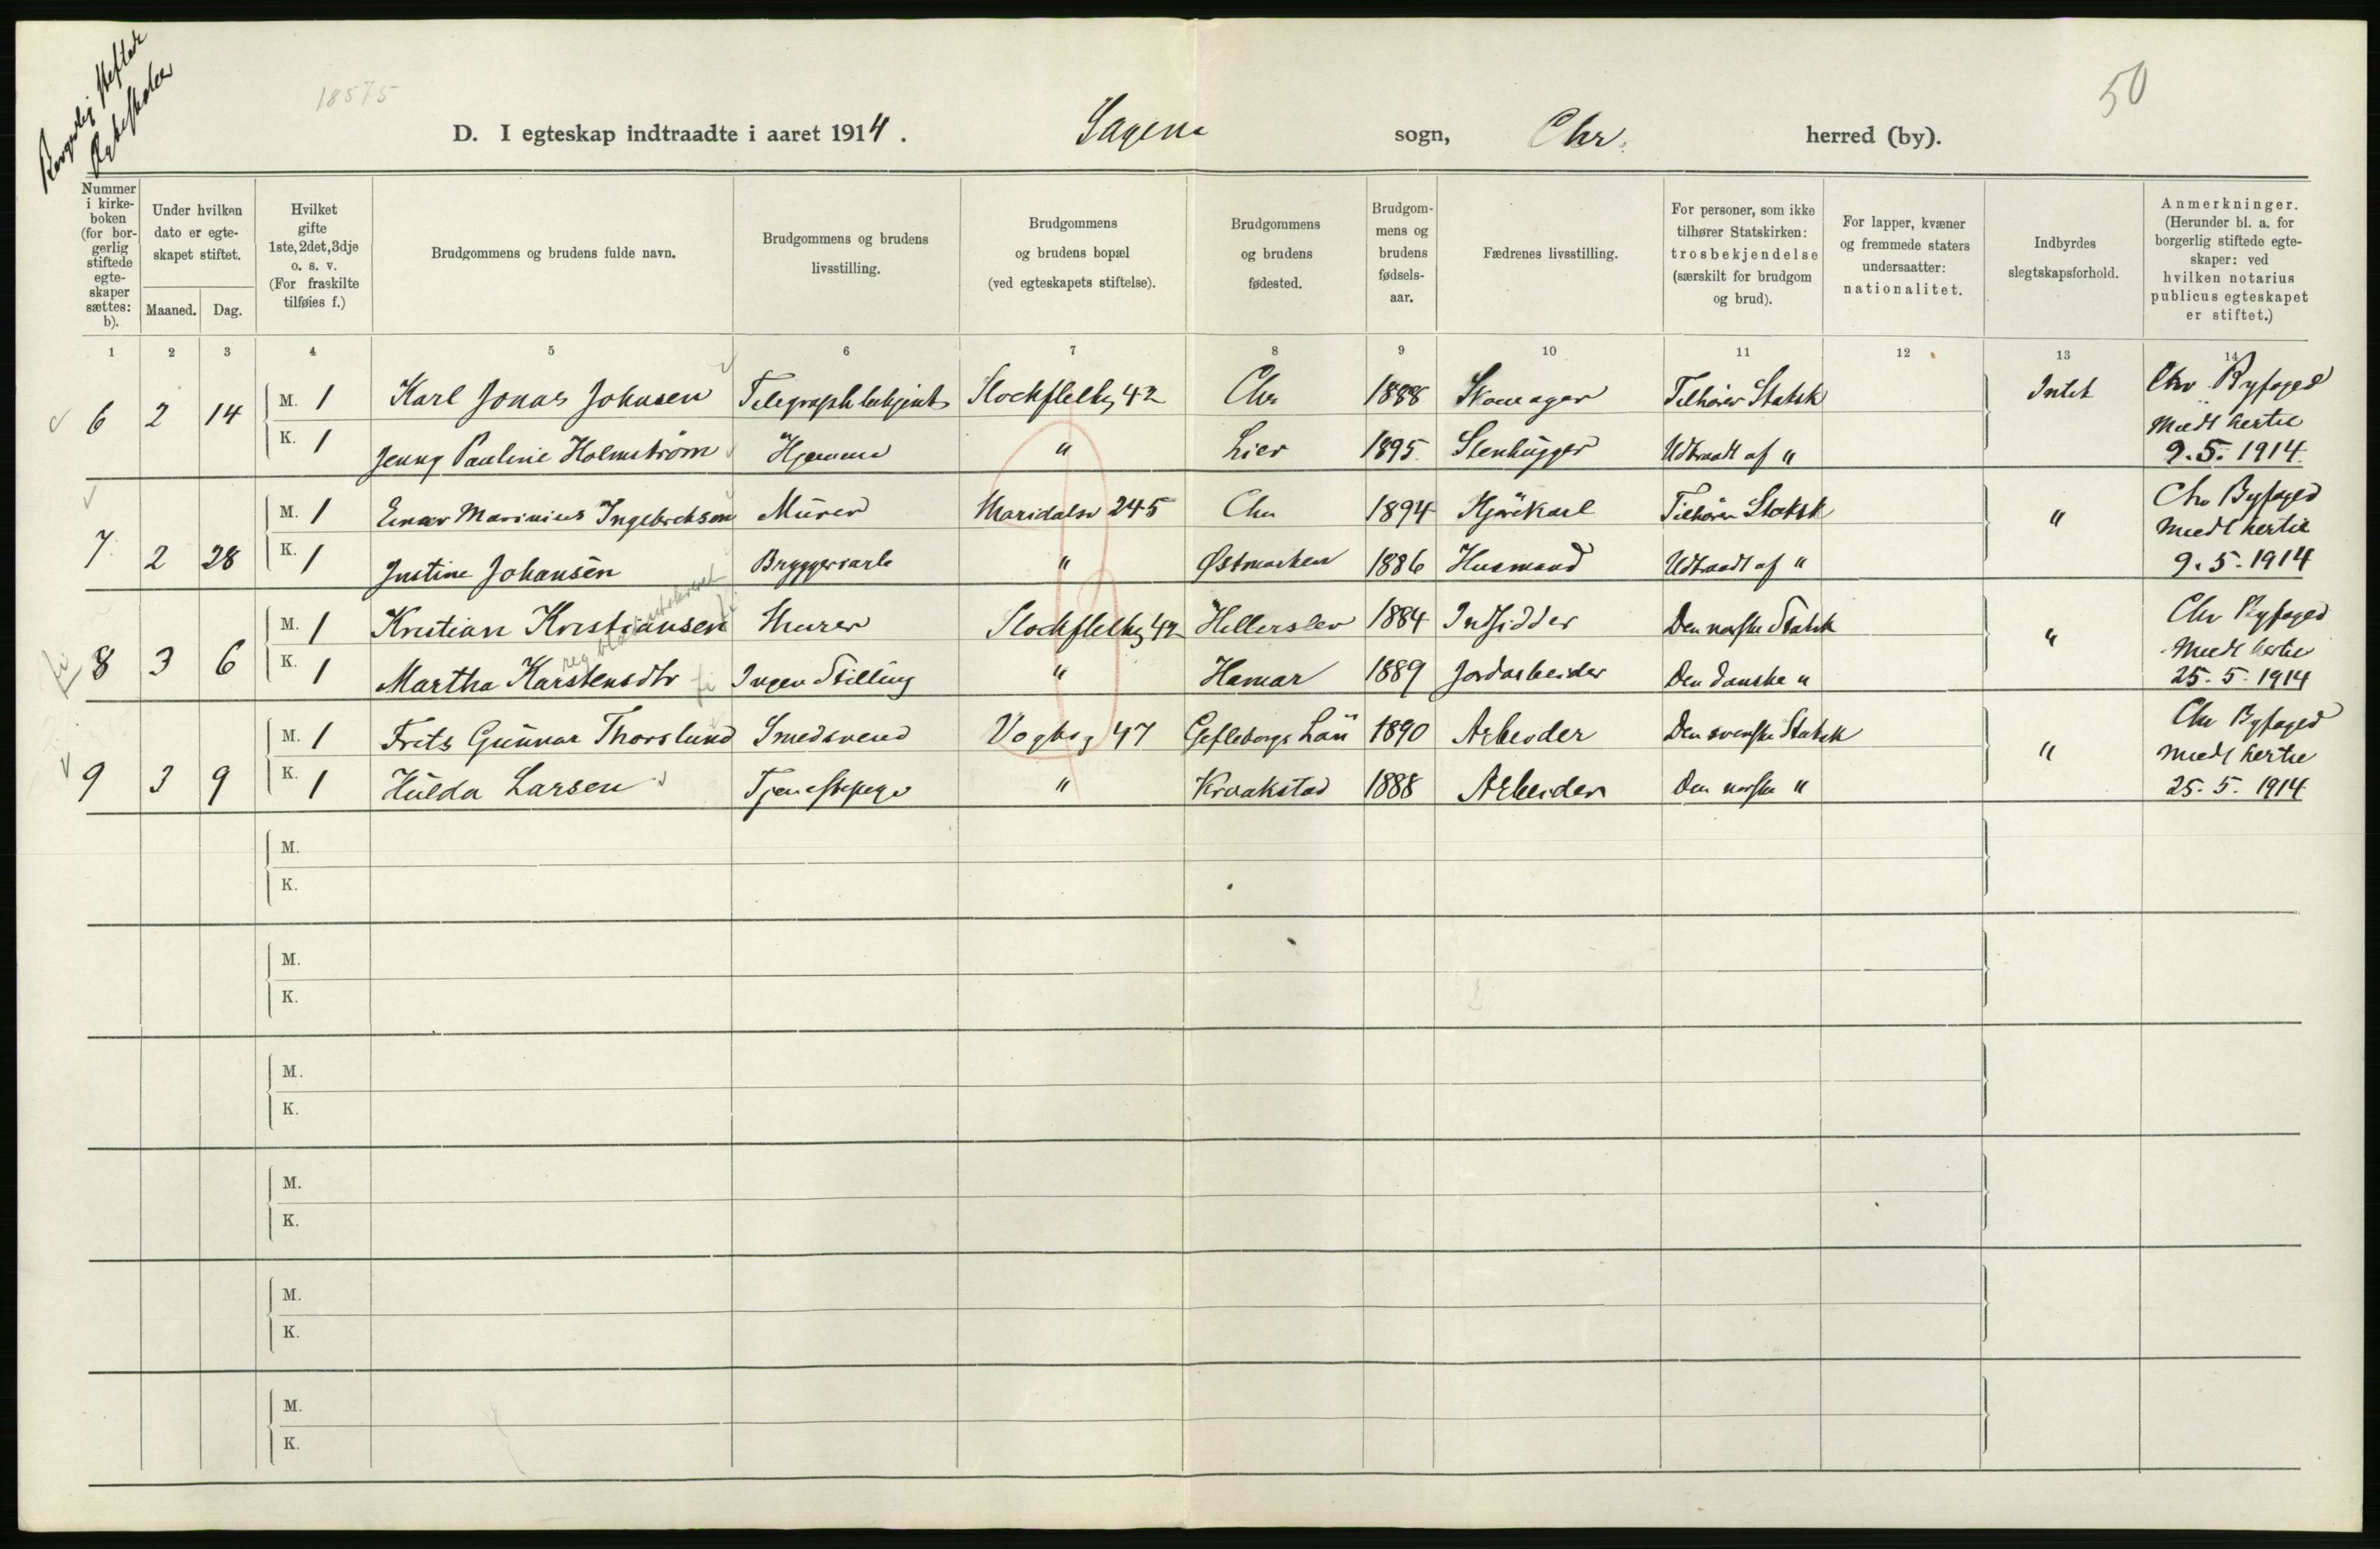 Borgerlig stiftede
Egteskaber
18575
50
D. I egteskap indtraadte i aaret 1914. Sagene sogn, Chr. herred (by).
Nummer i kirkeboken (for borgerlig stiftede egteskaper sættes: b).
Under hvilken dato er egteskapet stiftet.
Maaned. Dag.
Hvilket gifte 1ste, 2det, 3dje o. s. v. (For fraskilte tilføies f.)
Brudgommens og brudens fulde navn.
Brudgommens og brudens livsstilling.
Brudgommens og brudens bopæl (ved egteskapets stiftelse).
Brudgommens og brudens fødested.
Brudgommens og brudens fødselsaar.
Fædrenes livsstilling.
For personer, som ikke tilhører Statskirken: trosbekjendelse (særskilt for brudgom og brud).
For lapper, kvæner og fremmede staters undersaatter: nationalitet.
Indbyrdes slegtskapsforhold.
Anmerkninger. (Herunder bl. a. for borgerlig stiftede egteskaper: ved hvilken notarius publicus egteskapet er stiftet.)
1 2 3 4 5 6 7 8 9 10 11 12 13 14
6 2 14 M. 1 Karl Jonas Johnsen Telegraphbetjent Stockflethg 42 Chr 1888 Skomager Tilhører Statsk Intet Chr Byfoged
K. 1 Jenny Pauline Holmstrøm Hjemme " Lier 1895 Stenhugger Udtraadt af " Medl hertil 9.5.1914.
7 2 28 M. 1 Einar Marinius Ingebretsen Murer Maridalsv 245 Chr 1894 Kjørekarl Tilhører Statsk " Chr Byfoged
K. 1 Justine Johansen Bryggeriarb " Østmarken 1886 Husmand Udtraadt af " Medl hertil 9.5.1914
8 3 6 M. 1 Kristian Kristiansen Murer Stockflethg 42 Hellerslev 1884 Indsidder Den norske Statsk " Chr Byfoged
K. 1 Martha Karstensdtr Ingen Stilling " Hamar 1889 Jordarbeider Den danske " Medl hertil 25.5.1914
9 3 9 M. 1 Frits Gunnar Thorslund Smedsvend Vogtsg 47 Gefleborgs Län 1890 Arbeider Den svenske Statsk " Chr Byfoged
K. 1 Hulda Larsen Tjenestepige " Kraakstad 1888 Arbeider Den norske " Medl hertil 25.5.1914
M.
K.
M.
K.
M.
K.
M.
K.
M.
K.
M.
K.